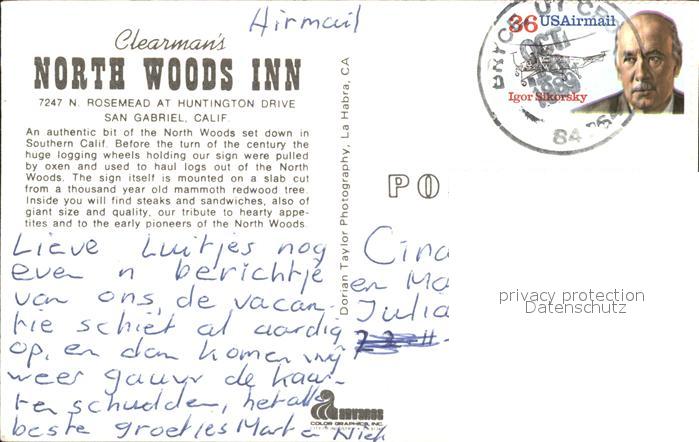 Airmail
Clearman's
NORTH WOODS INN
7247 N. ROSEMEAD AT HUNTINGTON DRIVE
SAN GABRIEL, CALIF.
An authentic bit of the North Woods set down in
Southern Calif. Before the turn of the century the
huge logging wheels holding our sign were pulled
by oxen and used to haul logs out of the North
Woods. The sign itself is mounted on a slab cut
from a thousand year old mammoth redwood tree.
Inside you will find steaks and sandwiches, also of
giant size and quality, our tribute to hearty appe-
tites and to the early pioneers of the North Woods
Lieve Luitjes nog
even n berichtje
van ons, de vacan-
tie schiet al aardig
op, en dan komen wij
weer gauw de kaar-
ten schudden, het alle
beste groetjes Mart en Nick
Dorian Taylor Photography, La Habra, CA
ADVANCE
COLOR GRAPHICS, INC.
36 USAirmail
Igor Sikorsky
BRYCE
OCT
1989
PO
Cina
en Ma
Julia
22
privacy protection
Datenschutz